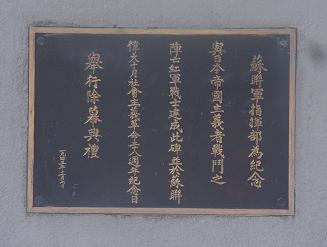 蘇聯軍指揮部為紀念
與日本帝國主義者戰鬥之
陣亡紅軍戰士建成此碑並於蘇聯
偉大十月社會主義革命廿八週年紀念日
舉行除幕典禮
一九四五年十一月七日